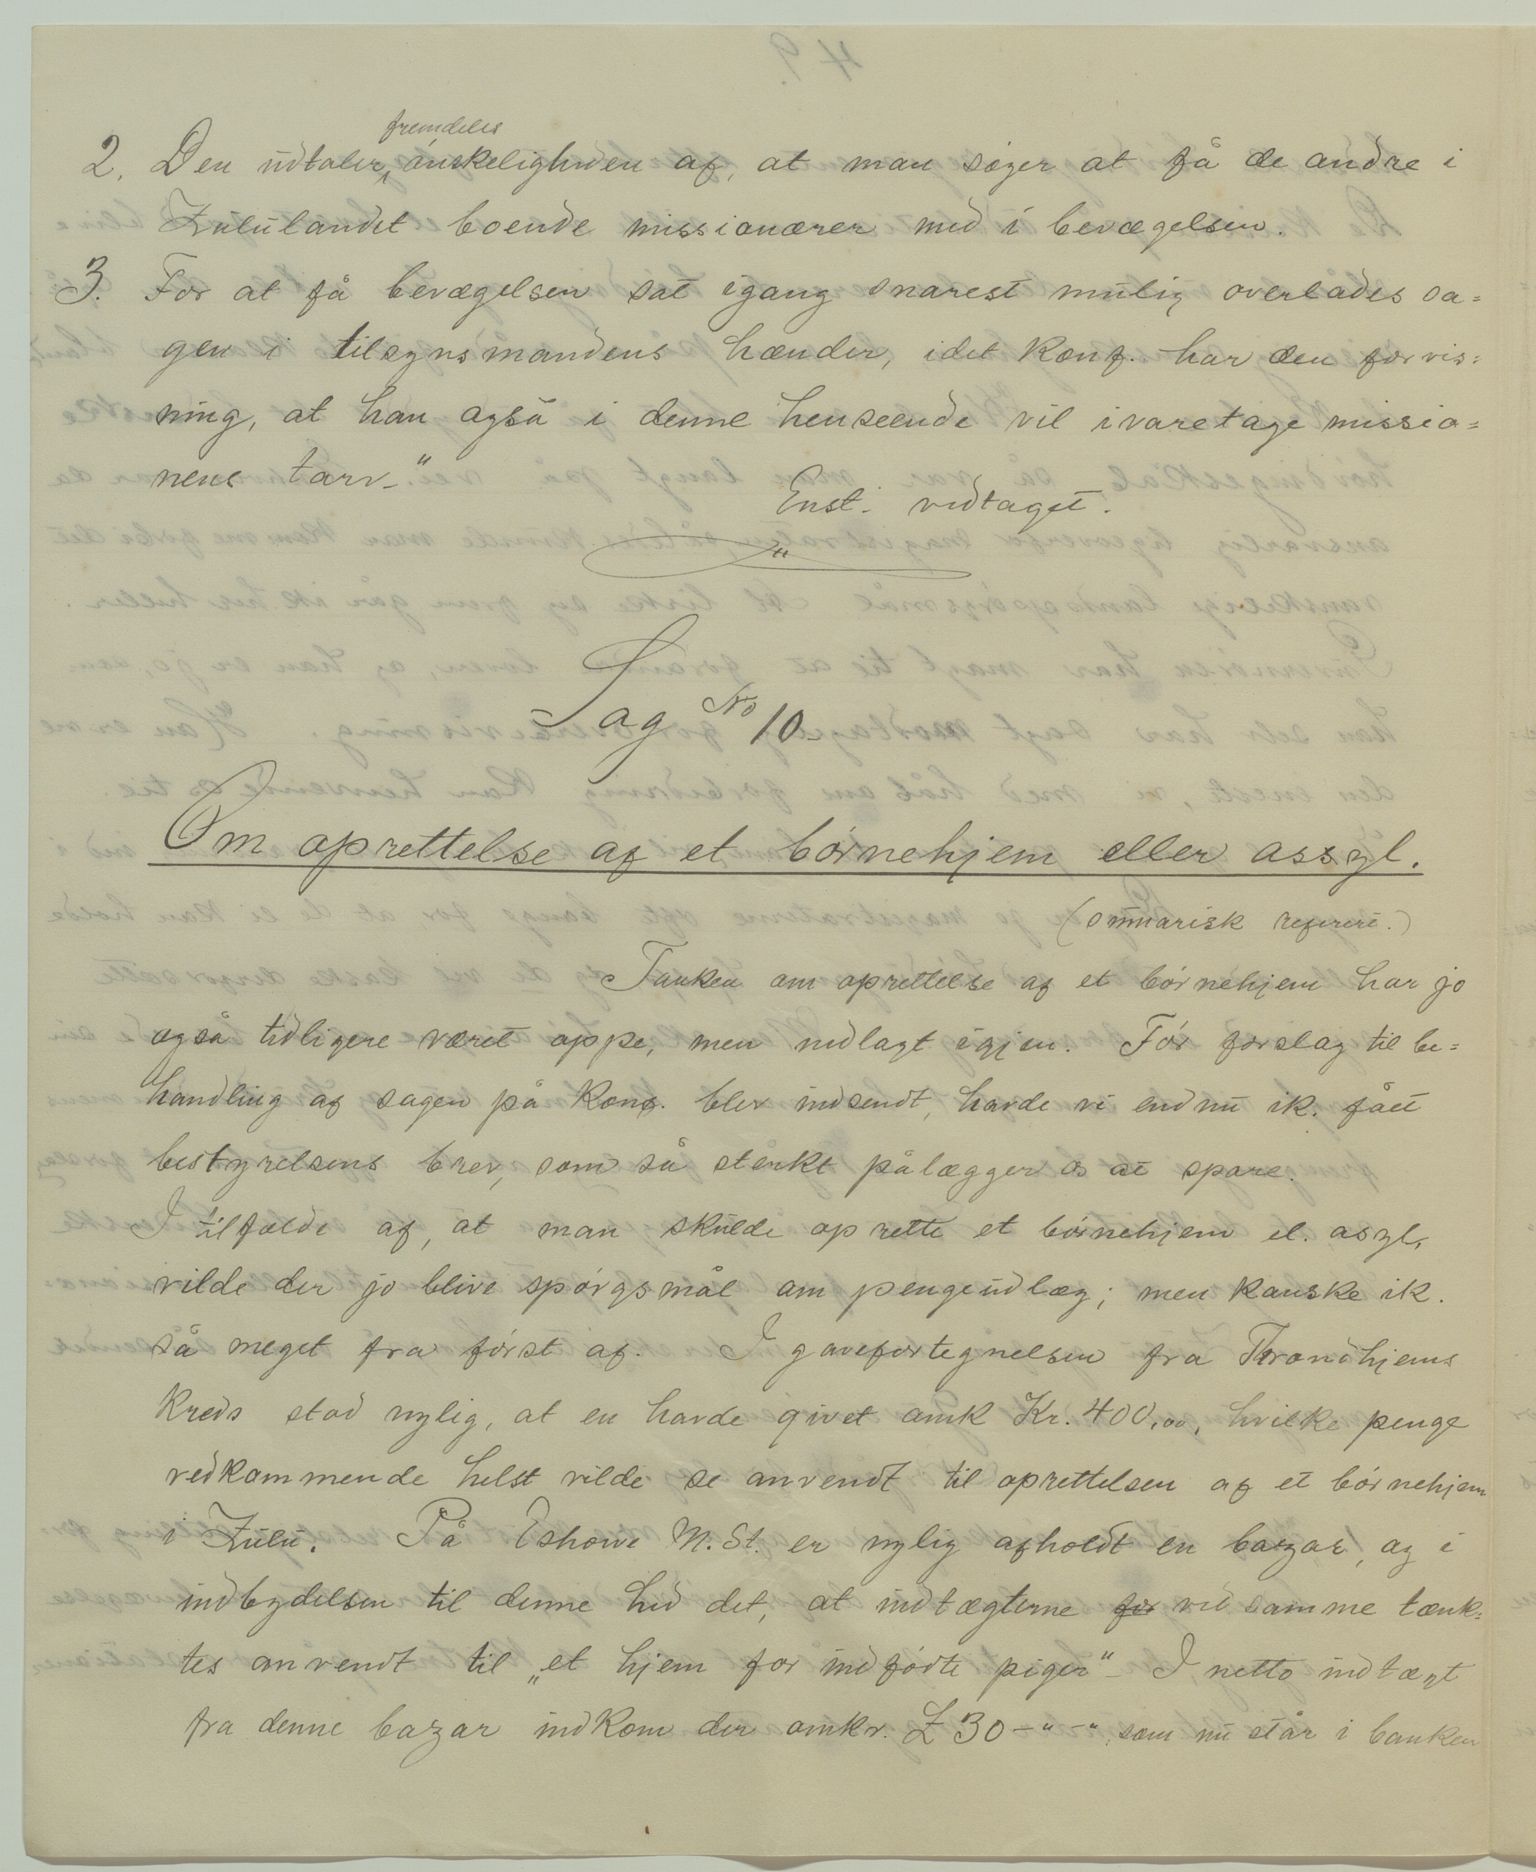 2. Den udtaler fremdeles ønskeligheden af, at man søger at få de andre i
Zululandet boende missionærer med i bevægelsen.
3. For at få bevægelsen sat igang snarest mulig overlades sa=
gen i tilsynsmandens hænder, idet Konf. har den forvis=
ning, at han også i denne henseende vil ivaretage missio=
nens tarv."
Enst. vedtaget.
"
Sag No 10.
Om oprettelse af et børnehjem eller assyl.
(summarisk referert.)
Tanken om oprettelse af et børnehjem har jo
også tidligere været oppe, men nedlagt igjen. Før forslag til be=
handling af sagen på Konf. blev indsendt, havde vi endnu ik. fået
bestyrelsens brev, som så sterkt pålægger os at spare.
I tilfælde af, at man skulde oprette et børnehjem el. asyl,
vilde der jo blive spørgsmål om pengeudlæg; men kanske ik.
så meget fra først af. I gavefortegnelsen fra Throndhjems
Kreds stod nylig, at en havde givet omk Kr. 400,00, hvilke penge
vedkommende helst vilde se anvendt til oprettelsen af et børnehjem
i Zulu. På Eshowe M. St. er nylig afholdt en bazar, og i
indbydelsen til denne hed det, at indtægterne for ved samme tænk=
tes anvendt til „et hjem for indfødte piger" I netto indtægt
fra denne bazar indkom der omkr. £ 30-"-", som nu står i banken